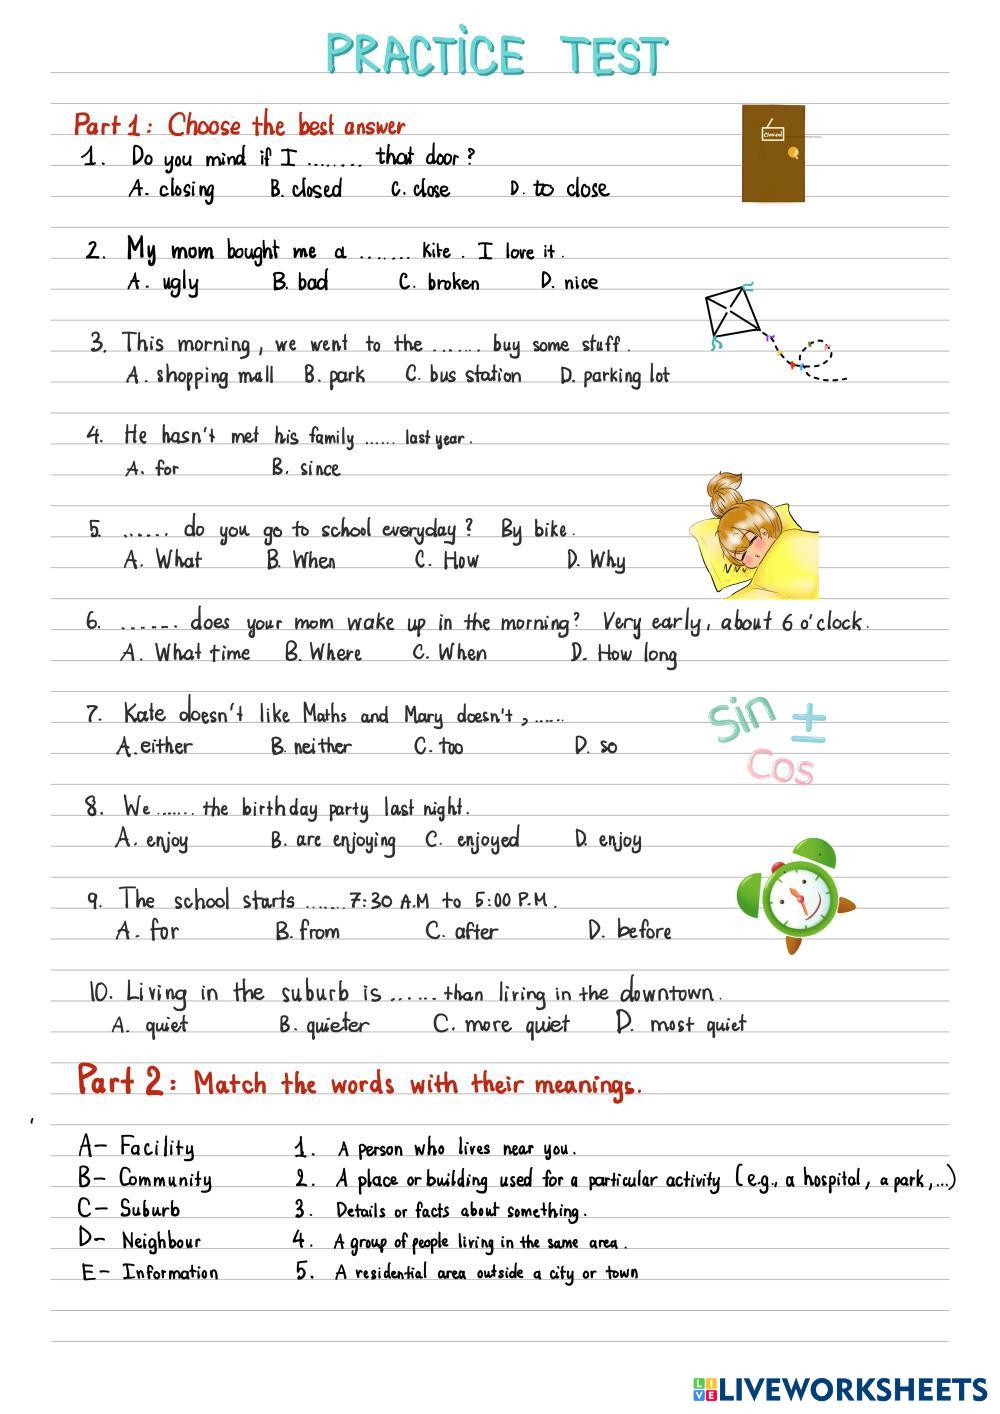 PRACTICE TEST
Part 1: Choose the best answer
1. Do you mind if I ........ that door?
A. closing B. closed C. close D. to close
Closed
2. My mom bought me a ....... kite. I love it.
A. ugly B. bad C. broken D. nice
3. This morning, we went to the ....... buy some stuff.
A. shopping mall B. park C. bus station D. parking lot
4. He hasn't met his family ...... last year.
A. for B. since
5. ...... do you go to school everyday? By bike.
A. What B. When C. How D. Why
6. ...... does your mom wake up in the morning? Very early, about 6 o'clock.
A. What time B. Where C. When D. How long
7. Kate doesn't like Maths and Mary doesn't, ......
A. either B. neither C. too D. so
Sin ±
Cos
8. We ....... the birthday party last night.
A. enjoy B. are enjoying C. enjoyed D. enjoy
9. The school starts ....... 7:30 A.M to 5:00 P.M.
A. for B. from C. after D. before
10. Living in the suburb is ...... than living in the downtown.
A. quiet B. quieter C. more quiet D. most quiet
Part 2: Match the words with their meanings.
A- Facility 1. A person who lives near you.
B- Community 2. A place or building used for a particular activity (e.g., a hospital, a park,...)
C- Suburb 3. Details or facts about something.
D- Neighbour 4. A group of people living in the same area.
E- Information 5. A residential area outside a city or town
LIVE LIVEWORKSHEETS